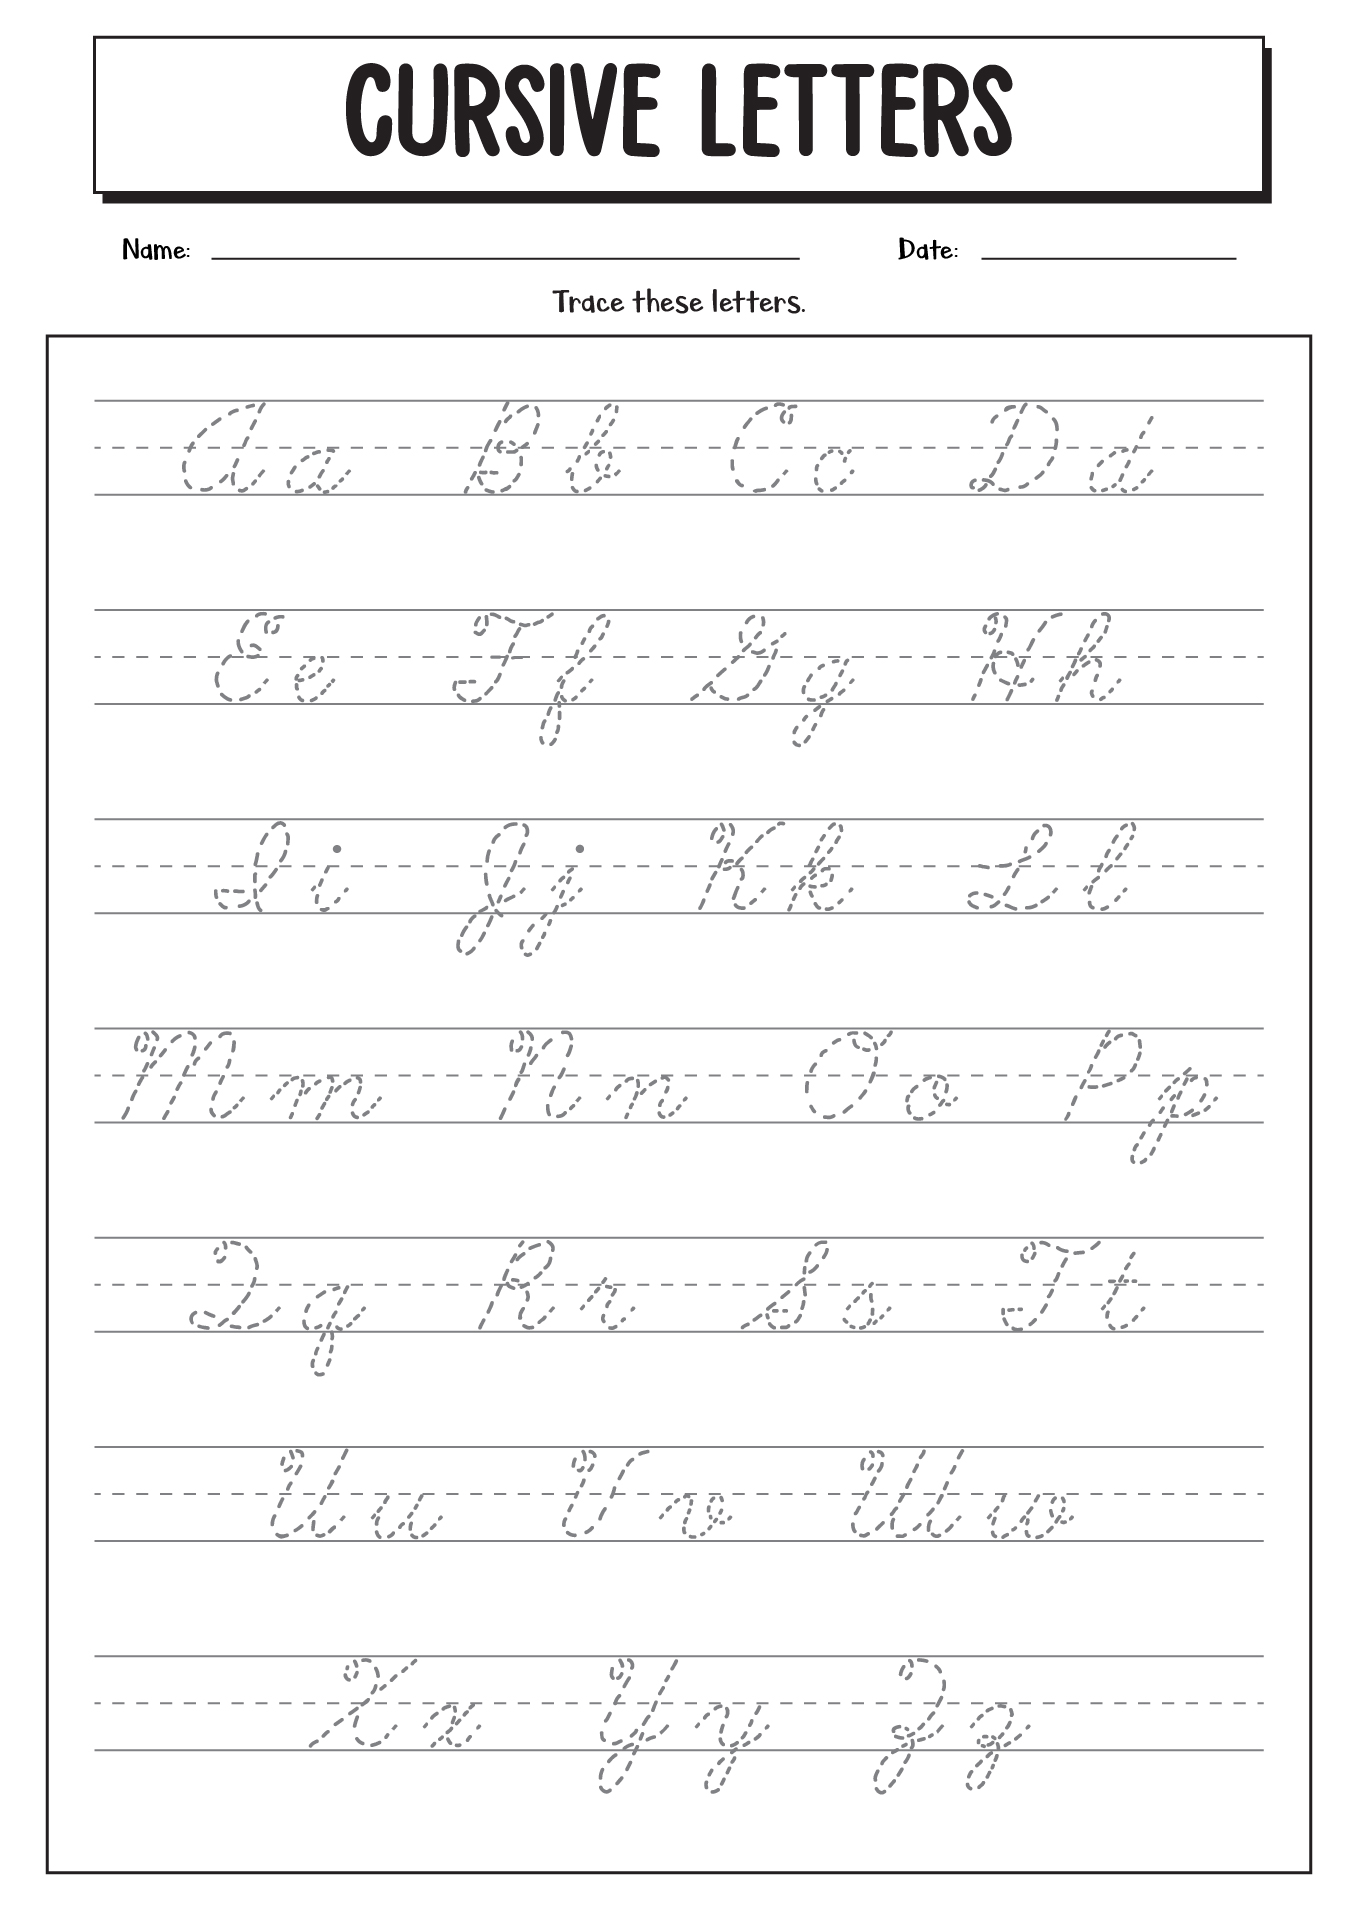 CURSIVE LETTERS
Name: Date:
Trace these letters.
Aa Bb Cc Dd
Ee Ff Gg Hh
Ii Jj Kk Ll
Mm Nn Oo Pp
Qq Rr Ss Tt
Uu Vv Ww
Xx Yy Zz